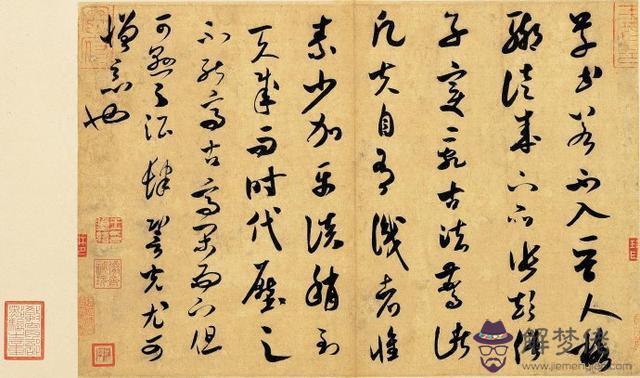 草書若不入晉人格
輒徒成下品張顛俗
子變亂古法驚諸
凡夫自有識者懷
素少加平淡稍到
天成而時代壓之
不能高古高閑而下但
可懸之酒肆䛒光尤可
憎惡也
解梦佬